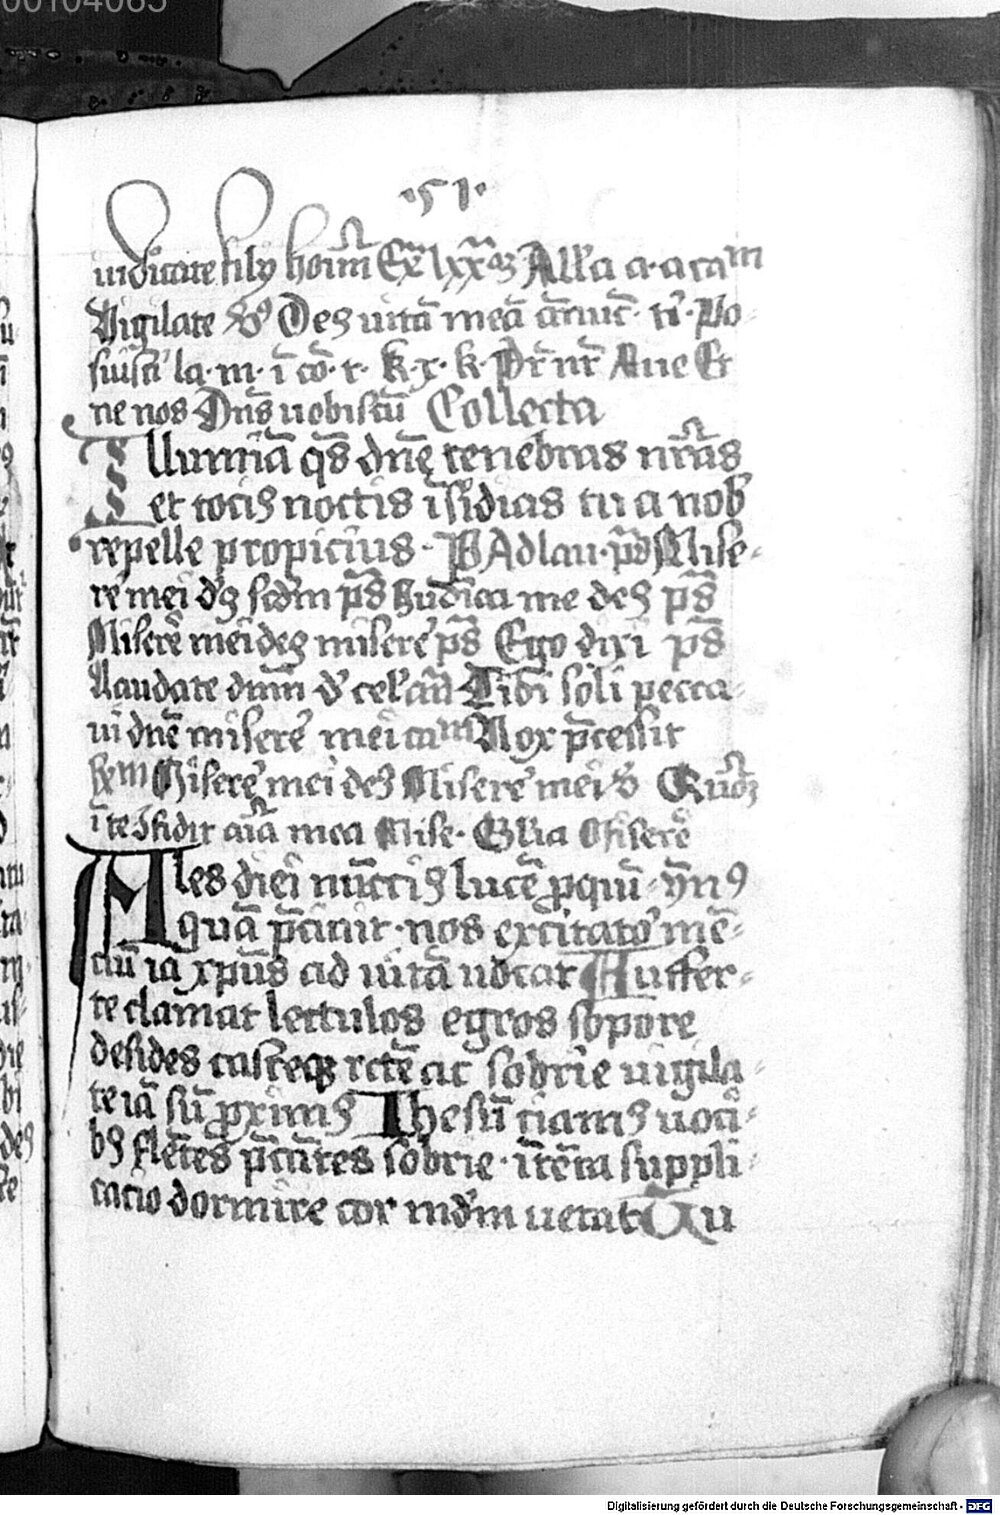 00104065
·51·
iudicate filij hoīm Ex lxxª Alla a·a ca m
Vigilate ℣ Deus uitā meā ānūc· ti· Po-
suisti la· m· ī cō· t· k· x· k· Pr̄ nr̄ Aue Et
ne nos Dn̄s uobiscū Collecta
Illumīa qs̄ dn̄e tenebras nr̄as
et tocius noctis īsidias tu a nob
repelle propicius· Ad lau· ps̄ Mise-
re mei ds scd̄m ps̄ Iudica me deus ps̄
Misere mei deus misere ps̄ Ego dixi ps̄
Laudate dnm̄ d' cel' añ Tibi soli pecca-
ui dn̄e misere mei ca m Nox p̄cessit
Misere mei deus Misere mei ℣ Qm̄
ī te ɔfidit aīa mea Mise· Glia Misere
Ales diei nūccius lucē ꝓpīquā yn9
quā p̄cinit· nos excitator mē-
ciū iā xp̄us ad uitā uocat Auffer-
te clamat lectulos egros sopore
desides casteqꝫ rcte ac sobrie uigila-
te iā sū ꝓximus Ihesū ciamus uoci-
bus flētes p̄cātes sobrie· ītēta suppli
cacio dormire cor mūdm uetat Tu
Digitalisierung gefördert durch die Deutsche Forschungsgemeinschaft - DFG